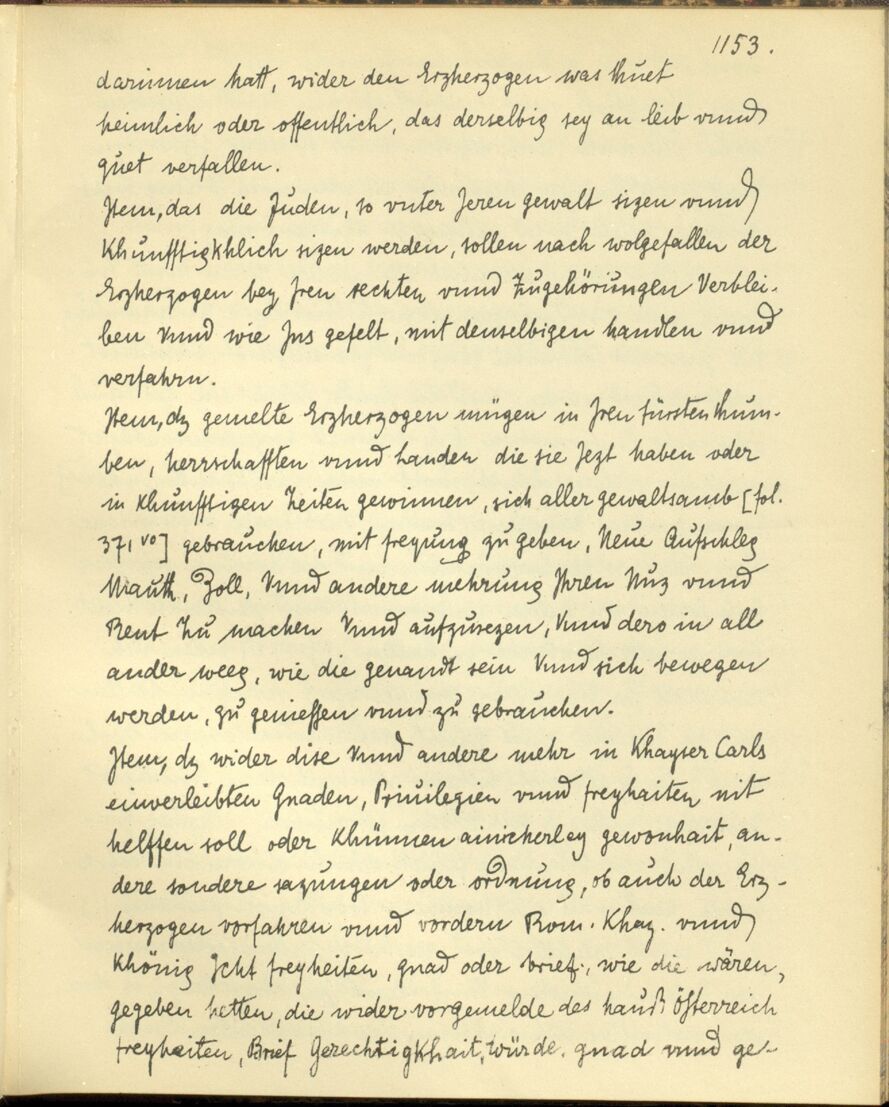 1153.
darinnen hatt, wider den Erzherzogen was thuet
heimlich oder offentlich, das derselbig sey an leib vnnd
guet verfallen.
Item, das die Juden, so vnter Jeren gewalt sizen vnnd
Khunfftigkhlich sizen werden, sollen nach wolgefallen der
Erzherzogen bey Jren rechten vnnd Zugehörungen Verblei-
ben Vnnd wie Jns gefelt, mit denselbigen handlen vnnd
verfahrn.
Item, dz gemelte Erzherzogen mügen in Jren fürstenthum-
ben, herrschafften vnnd Landen die sie Jezt haben oder
in Khunfftigen Zeiten gewinnen, sich aller gewaltsamb [fol.
371 vo] gebrauchen, mit freyung zu geben, Neue Aufschleg
Mauth, Zoll, Vnnd andere mehrung Ihren Nuz vnnd
Rent Zu machen Vnnd aufzusezen, Vnnd dero in all
ander weeg, wie die genandt sein Vnnd sich bewegen
werden, zu geniessen vnnd zu gebrauchen.
Item, dz wider dise Vnnd andere mehr in Khayser Carls
einverleibten Gnaden, Priuilegien vnnd freyhaiten nit
helffen soll oder Khünnen ainicherley gewonhait, an-
dere sondere sazungen oder ordnung, ob auch der Erz-
herzogen vorfahren vnnd vordern Rom. Khay. vnnd
Khönig Icht freyheiten, gnad oder brief, wie die wären,
gegeben hetten, die wider vorgemelde des hauß Österreich
freyheiten, Brief Gerechtigkhait, würde. gnad vnnd ge-